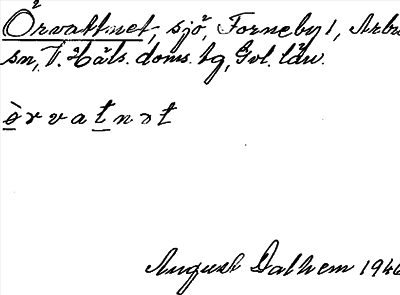 Örvattnet, sjö, Forneby 1, Arbrå
sn, V. Häls. doms. tg, Gvl. län.
ò r v a t n ə t
August Dalhem 1946